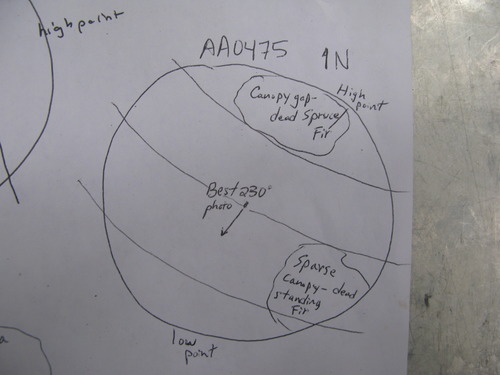 high point
AA0475 1N
High
point
Canopy gap-
dead Spruce
Fir
Best 230°
photo
Sparse
Canopy-dead
standing
Fir
low
point
a